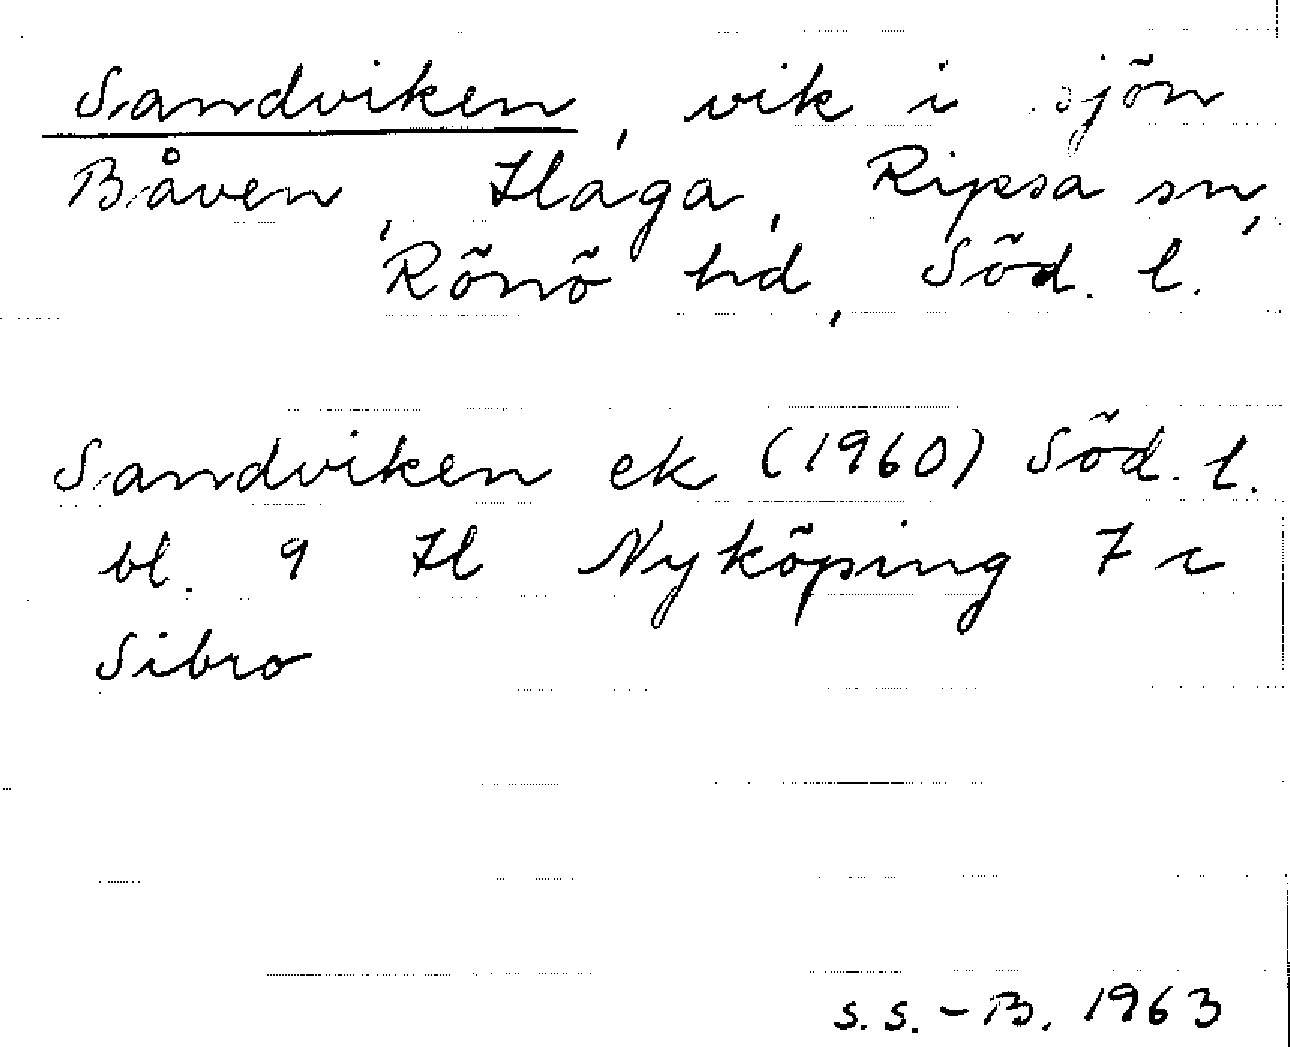 Sandviken, vik i sjön
Båven, Haga, Ripsa sn,
Rönö hd, Söd. l.
Sandviken ek (1960) Söd. l.
bl. 9 H Nyköping 7 c
Sibro
S.S.-B. 1963